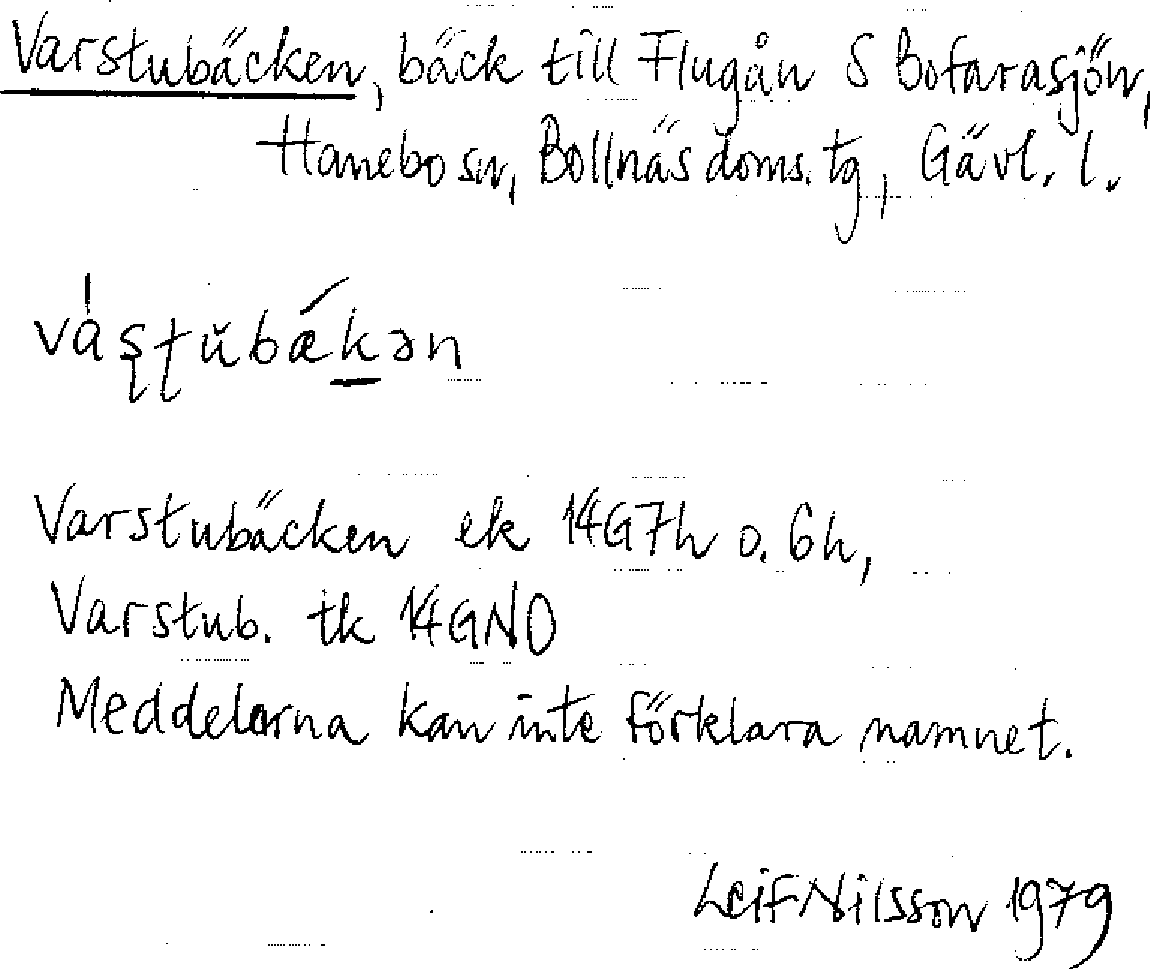 Varstubäcken, bäck till Flugån S Bofarasjön,
Hanebo sn, Bollnäs doms. tg, Gävl. l.
vá̍ʂʈŭbǽkən
Varstubäcken ek 14G7h o. 6h,
Varstub. tk 14GNO
Meddelarna kan inte förklara namnet.
Leif Nilsson 1979